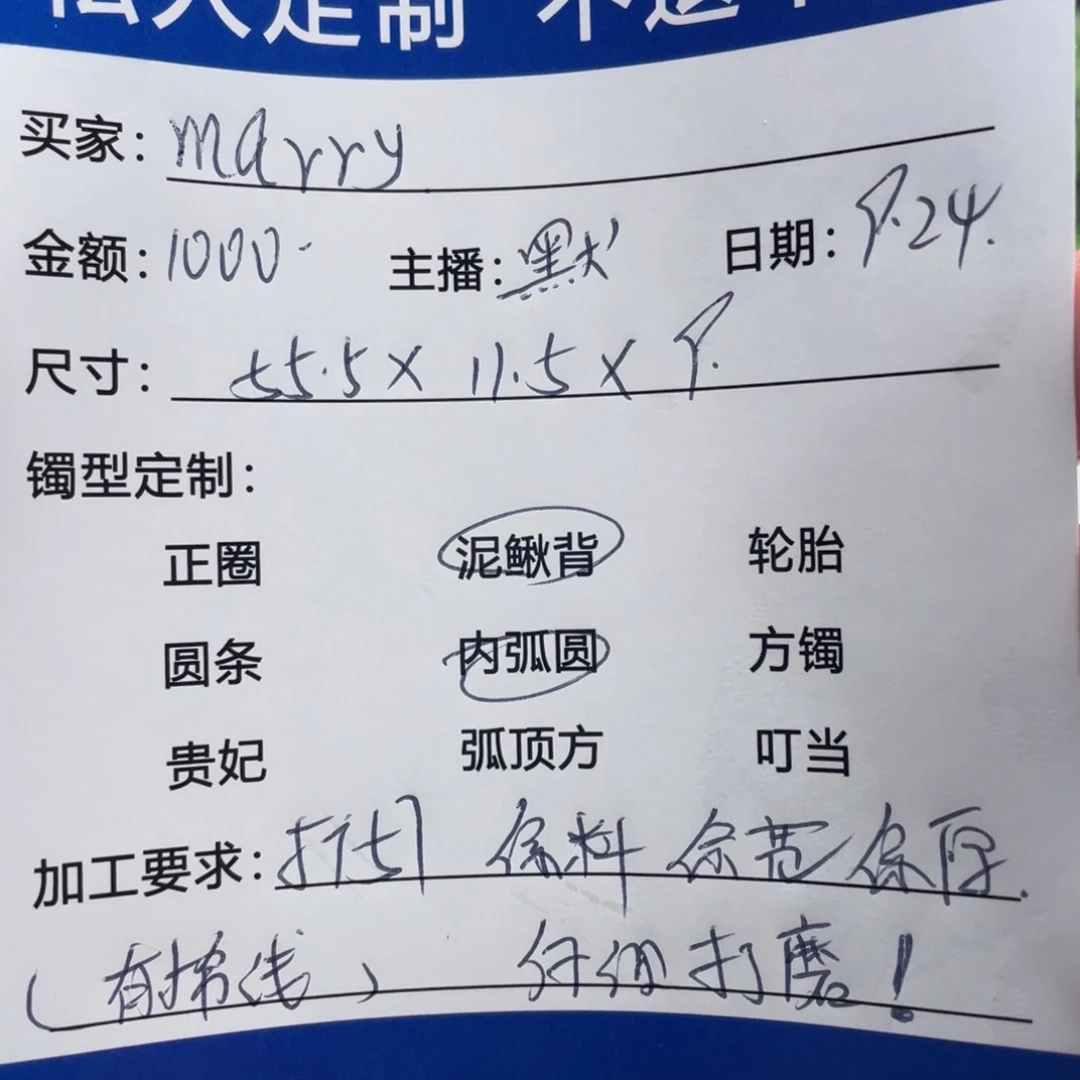 私人定制 不退
买家：marry
金额：1000- 主播：默 日期：9.24.
尺寸：55.5×11.5×9.
镯型定制：
正圈 泥鳅背 轮胎
圆条 内弧圆 方镯
贵妃 弧顶方 叮当
加工要求：打切 保料 保宽 保厚.
（有棉线） 仔细打磨！